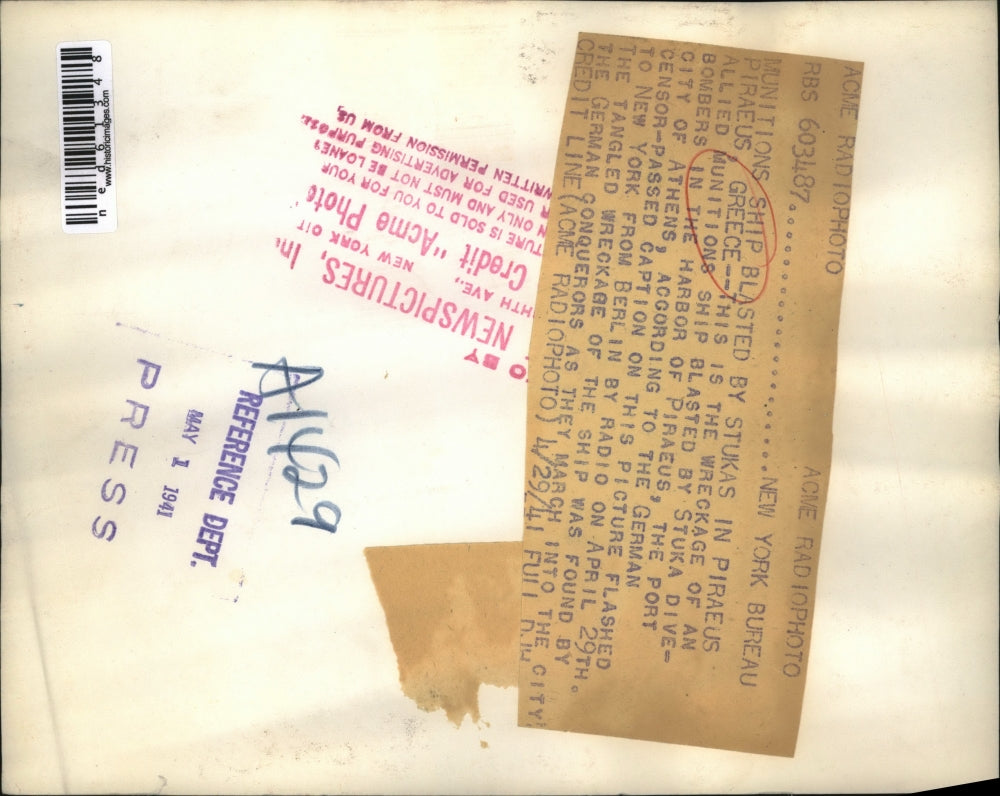 ACME RADIOPHOTO ACME RADIOPHOTO
RBS 603487..............................NEW YORK BUREAU
MUNITIONS SHIP BLASTED BY STUKAS IN PIRAEUS
PIRAEUS, GREECE--THIS IS THE WRECKAGE OF AN
ALLIED MUNITIONS SHIP BLASTED BY STUKA DIVE-
BOMBERS IN THE HARBOR OF PIRAEUS, THE PORT
CITY OF ATHENS, ACCORDING TO THE GERMAN
CENSOR-PASSED CAPTION ON THIS PICTURE FLASHED
TO NEW YORK FROM BERLIN BY RADIO ON APRIL 29TH.
THE TANGLED WRECKAGE OF THE SHIP WAS FOUND BY
THE GERMAN CONQUERORS AS THEY MARCH INTO THE CITY
CREDIT LINE (ACME RADIOPHOTO) 4/29/41 FUll
BY
NEWSPICTURES, In
HTH AVE., NEW YORK CIT
Credit "Acme Photo
TURE IS SOLD TO YOU FOR YOUR
N ONLY AND MUST NOT BE LOANE
R USED FOR ADVERTISING PURPOSE
WRITTEN PERMISSION FROM US.
A1429
REFERENCE DEPT.
MAY 1 1941
PRESS
ned613348
www.historicimages.com